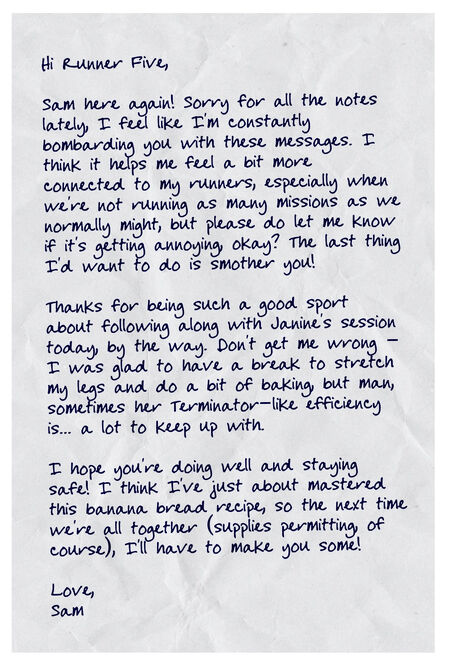 Hi Runner Five,
Sam here again! Sorry for all the notes
lately, I feel like I'm constantly
bombarding you with these messages. I
think it helps me feel a bit more
connected to my runners, especially when
we're not running as many missions as we
normally might, but please do let me know
if it's getting annoying, okay? The last thing
I'd want to do is smother you!
Thanks for being such a good sport
about following along with Janine's session
today, by the way. Don't get me wrong -
I was glad to have a break to stretch
my legs and do a bit of baking, but man,
sometimes her Terminator-like efficiency
is... a lot to keep up with.
I hope you're doing well and staying
safe! I think I've just about mastered
this banana bread recipe, so the next time
we're all together (supplies permitting, of
course), I'll have to make you some!
Love,
Sam